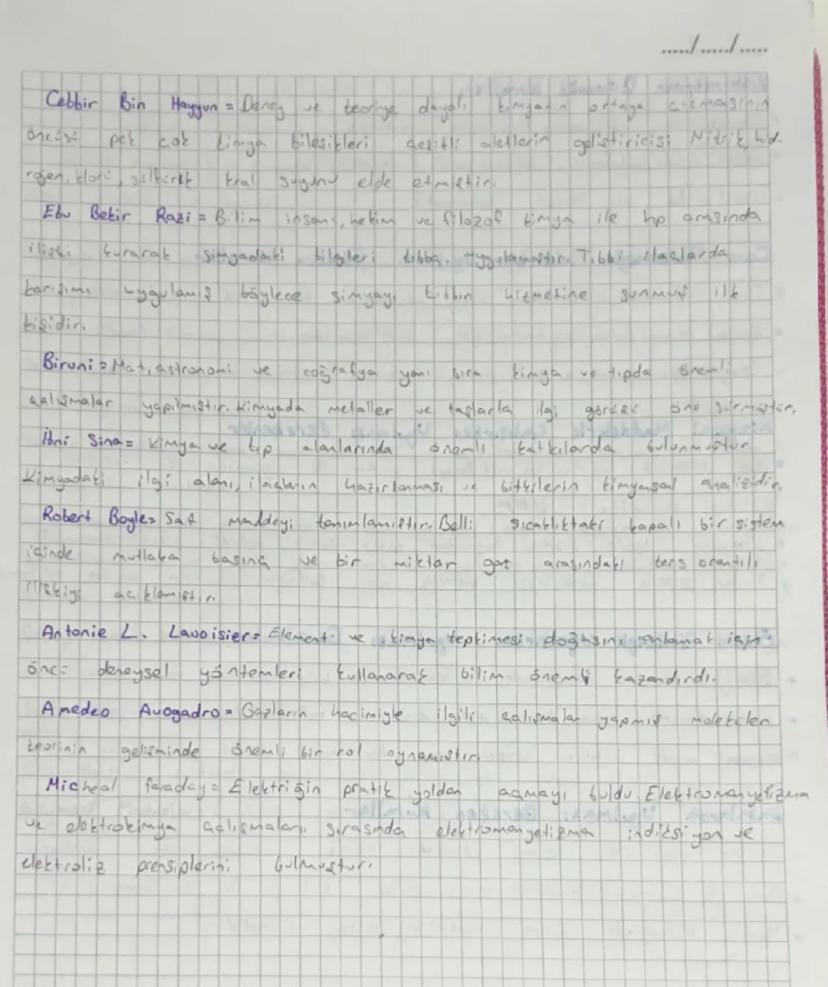 ...../...../.....
Cebbir Bin Hayyun = Deney ve teoriye dayalı kimyanın ortaya çıkmasının
öncüsü pek çok kimya bileşikleri çeşitli aletlerin geliştiricisi Nitrik, hid-
rojen, klorü, sülfürik kral suyunu elde etmiştir.
Ebu Bekir Razi = Bilim insanı, hekim ve filozof kimya ile tıp arasında
ilişki kurarak simyadaki bilgileri tıbba uygulamıştır. Tıbbi ilaçlarda
karışımı uygulamış böylece simyayı tıbbın hizmetine sunmuş ilk
kişidir.
Biruni = Mat, astronomi ve coğrafya yanı sıra kimya ve tıpda önemli
çalışmalar yapılmıştır. Kimyada metaller ve taşlarla ilgi görüşler öne sürmüştür.
İbni Sina = Kimya ve tıp alanlarında önemli katkılarda bulunmuştur
Kimyadaki ilgi alanı, ilaçların hazırlanması ve bitkilerin kimyasal analizidir.
Robert Boyle = Saf maddeyi tanımlamıştır. Belli sıcaklıktaki kapalı bir sistem
içinde mutlaka basınç ve bir miktar gaz arasındaki ters orantılı
ilişkiyi açıklamıştır.
Antonie L. Lavoisier = Element ve kimya tepkimesi doğasını anlamak için
önce deneysel yöntemleri kullanarak bilim önemli kazandırdı.
Amedeo Avogadro = Gazların hacimiyle ilgili çalışmalar yapmış moleküler
teorinin gelişminde önemli bir rol oynamıştır.
Micheal faraday = Elektriğin pratik yoldan açmayı buldu. Elektromanyetizma
ve elektrokimya çalışmaları sırasında elektromanyetizma indiksiyon ve
elektroliz prensiplerini bulmuştur.